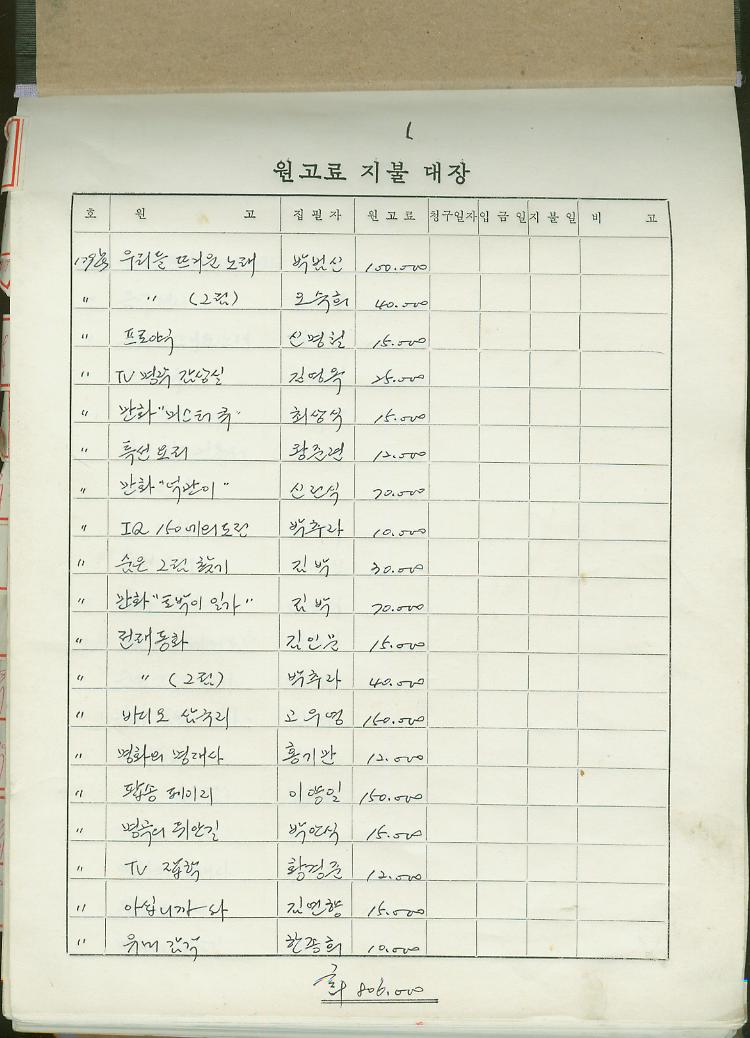 원고료 지불 대장
호 원 고 집필자 원고료 청구일자 입금일 지불일 비 고
179호 우리들 뜨거운 노래 박범신 100.000
" " (그림) 오숙희 40.000
" 프로야구 신명철 15.000
" TV 명곡 감상실 김영욱 25.000
" 만화 "미스터 쿡" 최상식 15.000
" 특선요리 왕준련 12.000
" 만화 "덕만이" 신문식 70.000
" IQ 150에의 도전 박추라 10.000
" 숨은 그림 찾기 김박 30.000
" 만화 "토박이 일가" 김박 70.000
" 전래동화 김인문 15.000
" " (그림) 박추라 40.000
" 바디오 삼국지 고우영 150.000
" 명화의 명대사 홍기만 12.000
" 팝송 페이지 이양일 150.000
" 명곡의 뒤안길 박연식 15.000
" TV 잡학 황경준 12.000
" 아십니까 와 김연향 15.000
" 유머 감각 한종희 10.000
計 806.000